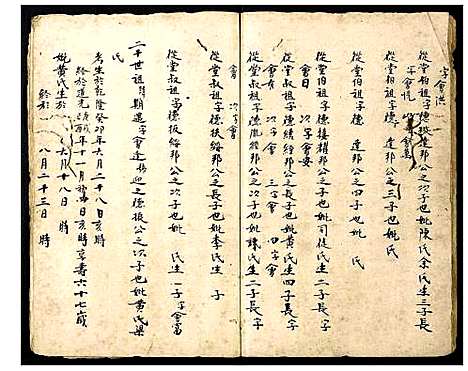 字會洪
從堂伯祖字德珠建邦公之次子也妣陳氏余氏生三子長
字會悅 次字會
從堂祖字德 建邦公之三子也妣氏
從堂叔祖字德 達邦公之子也妣 氏
從堂伯祖字德接耀邦公之子也妣司徒氏生二子長字
會日 次字會安
從堂叔祖字德績經邦公之子也妣黃氏生四子長字
會 次字會 三字會 四字會
從堂叔祖字德胤經邦公之次子也妣譚氏生二子長字
會 次字會
從堂叔祖字德扳綸邦公之長子也妣李氏生 子
從堂叔祖字德扶綸邦公之次子也妣 氏生一子字會富
二十世祖諱期進字會達號迎之德振公之次子也妣黃氏梁
氏
考生於乾隆癸卯年六月二十八日亥時
終於道光 年十一月 日亥時享壽六十七歲
妣黃氏生於 六月十八日 時
終於 八月二十三日 時